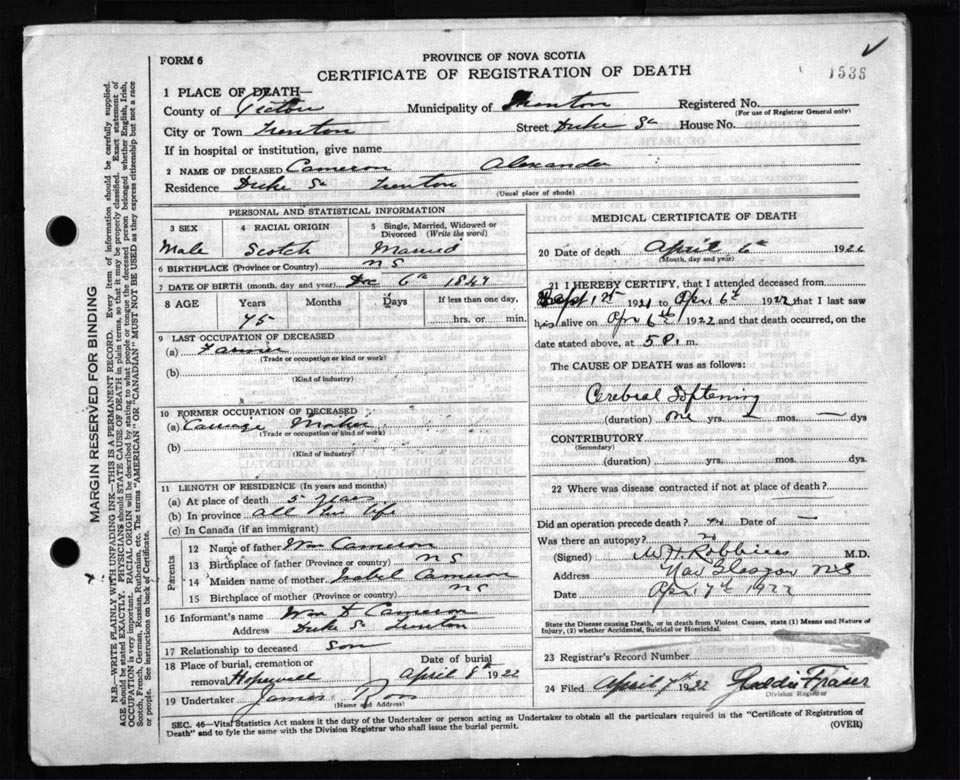 FORM 6
PROVINCE OF NOVA SCOTIA
CERTIFICATE OF REGISTRATION OF DEATH
1536
1 PLACE OF DEATH—
County of Pictou Municipality of Trenton Registered No.
(For use of Registrar General only)
City or Town Trenton Street Duke St House No.
If in hospital or institution, give name
2 NAME OF DECEASED Cameron Alexander
Residence Duke St Trenton
(Usual place of abode)
PERSONAL AND STATISTICAL INFORMATION
3 SEX 4 RACIAL ORIGIN 5 Single, Married, Widowed or Divorced (Write the word)
Male Scotch Married
6 BIRTHPLACE (Province or Country) N S
7 DATE OF BIRTH (month, day and year) Dec 6th
8 AGE Years Months Days If less than one day,
75 hrs. or min.
9 LAST OCCUPATION OF DECEASED
(a) Farmer
(Trade or occupation or kind of work)
(b)
(Kind of industry)
10 FORMER OCCUPATION OF DECEASED
(a) Carriage Maker
(Trade or occupation or kind of work)
(b)
(Kind of industry)
11 LENGTH OF RESIDENCE (In years and months)
(a) At place of death 5 years
(b) In province all his life
(c) In Canada (if an immigrant)
Parents
12 Name of father Wm Cameron
13 Birthplace of father (Province or country) N S
14 Maiden name of mother Isabel Cameron
15 Birthplace of mother (Province or country) N S
16 Informant's name Wm D Cameron
Address Duke St Trenton
17 Relationship to deceased Son
18 Place of burial, cremation or Date of burial
removal Hopewell April 8th 1922
19 Undertaker James Ross
(Name and Address)
MEDICAL CERTIFICATE OF DEATH
20 Date of death April 6th 1922
(Month, day and year)
21 I HEREBY CERTIFY, that I attended deceased from
Sept 1st 1921 to Apr 6th 1922 that I last saw
him alive on Apr 6th 1922 and that death occurred, on
date stated above, at 5 P. m.
The CAUSE OF DEATH was as follows:
Cerebral Softening
(duration) one yrs. — mos. — dys
CONTRIBUTORY
(Secondary)
(duration) yrs. mos. dys.
22 Where was disease contracted if not at place of death?
Did an operation precede death? no Date of —
Was there an autopsy? no
(Signed) Robbins M.D.
Address New Glasgow N S
Date Apr 7th 1922
State the Disease causing Death, or in death from Violent Causes, state (1) Means and Nature of
Injury, (2) whether Accidental, Suicidal or Homicidal.
23 Registrar's Record Number
24 Filed April 7th 1922 Fraser
Division Registrar
SEC. 46—Vital Statistics Act makes it the duty of the Undertaker or person acting as Undertaker to obtain all the particulars required in the "Certificate of Registration of
Death" and to fyle the same with the Division Registrar who shall issue the burial permit. (OVER)
MARGIN RESERVED FOR BINDING
N.B.—WRITE PLAINLY WITH UNFADING INK—THIS IS A PERMANENT RECORD. Every item of information should be carefully supplied.
AGE should be stated EXACTLY. PHYSICIANS should STATE CAUSE OF DEATH in plain terms, so that it may be properly classified. Exact statement of
OCCUPATION is very important. RACIAL ORIGIN will be described by stating to what people or tongue the deceased person belonged whether English, Irish,
Scotch, French, German, Russian, Ruthenian, etc. The terms "AMERICAN" OR "CANADIAN" MUST NOT BE USED as they express citizenship but not a race
or people. See instructions on back of Certificate.